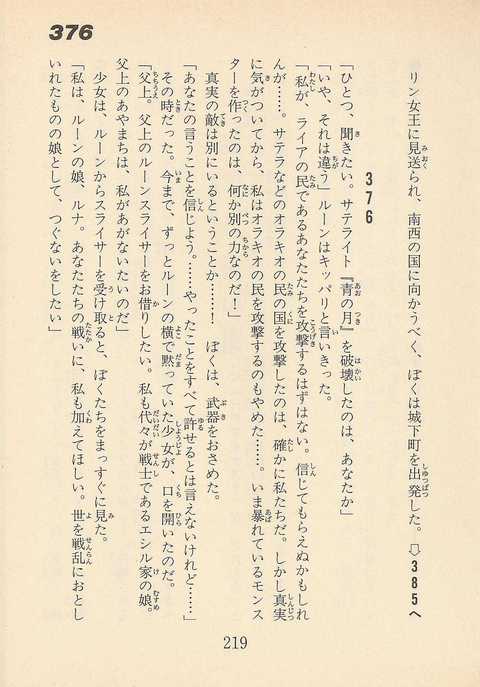 376
リン女王に見送られ、南西の国に向かうべく、ぼくは城下町を出発した。⇨385へ
376
「ひとつ、聞きたい。サテライト『青の月』を破壊したのは、あなたか」
「いや、それは違う」ルーンはキッパリと言いきった。
「私が、ライアの民であるあなたたちを攻撃するはずはない。信じてもらえぬかもしれ
んが……。サテラなどのオラキオの民の国を攻撃したのは、確かに私たちだ。しかし真実
に気がついてから、私はオラキオの民を攻撃するのもやめた……。いま暴れているモンス
ターを作ったのは、何か別の力なのだ！」
真実の敵は別にいるということか……！　ぼくは、武器をおさめた。
「あなたの言うことを信じよう。……やったことをすべて許せるとは言えないけれど……」
その時だった。今まで、ずっとルーンの横で黙っていた少女が、口を開いたのだ。
「父上。父上のルーンスライサーをお借りしたい。私も代々が戦士であるエシル家の娘。
父上のあやまちは、私があがないたいのだ」
少女は、ルーンからスライサーを受け取ると、ぼくたちをまっすぐに見た。
「私は、ルーンの娘、ルナ。あなたたちの戦いに、私も加えてほしい。世を戦乱におとし
いれたものの娘として、つぐないをしたい」
219